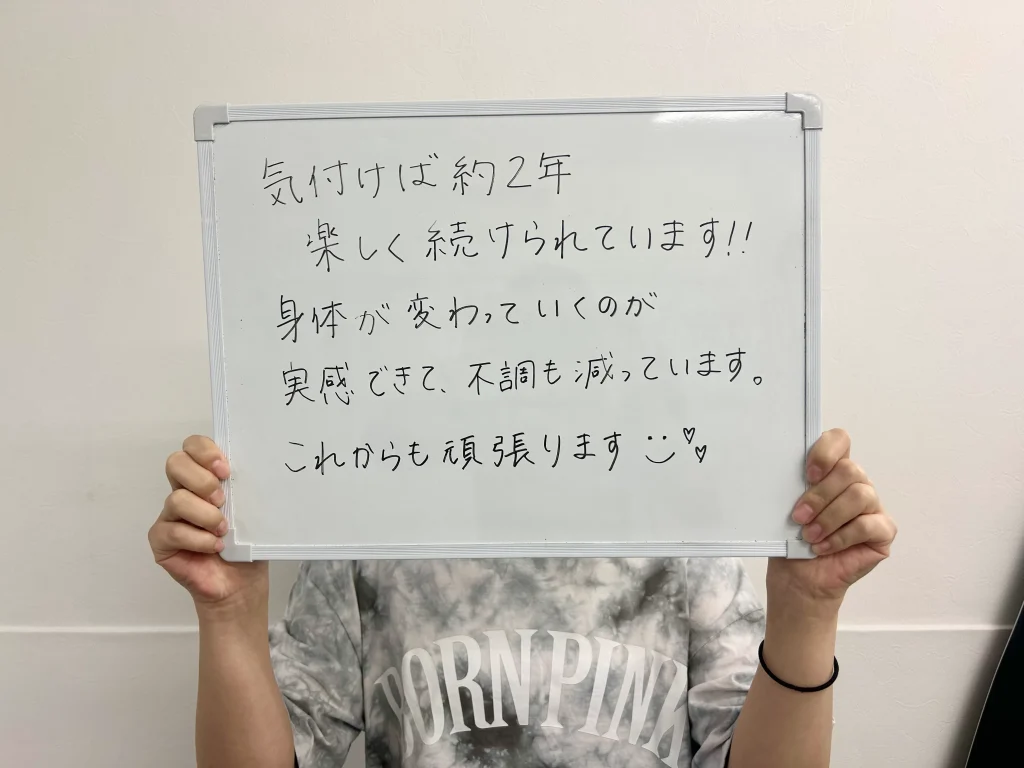 気付けば約2年
楽しく続けられています!!
身体が変わっていくのが
実感できて、不調も減っています。
これからも頑張ります
BORN PINK